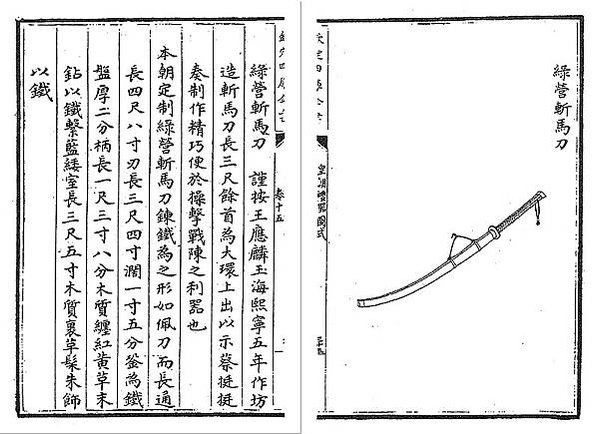 綠營斬馬刀
皇朝禮器圖式
卷十五
綠營斬馬刀　謹按王應麟玉海熙寧五年作坊
造斬馬刀長三尺餘首為大環上出以示蔡挺挺
奏制作精巧便於操擊戰陳之利器也
本朝定制綠營斬馬刀鍊鐵為之形如佩刀而長通
長四尺八寸刃長三尺四寸濶一寸五分釜為鐵
盤厚二分柄長一尺三寸八分木質纏紅黃草末
鉆以鐵繫藍緌室長三尺五寸木質裹草髹朱飾
以鐵